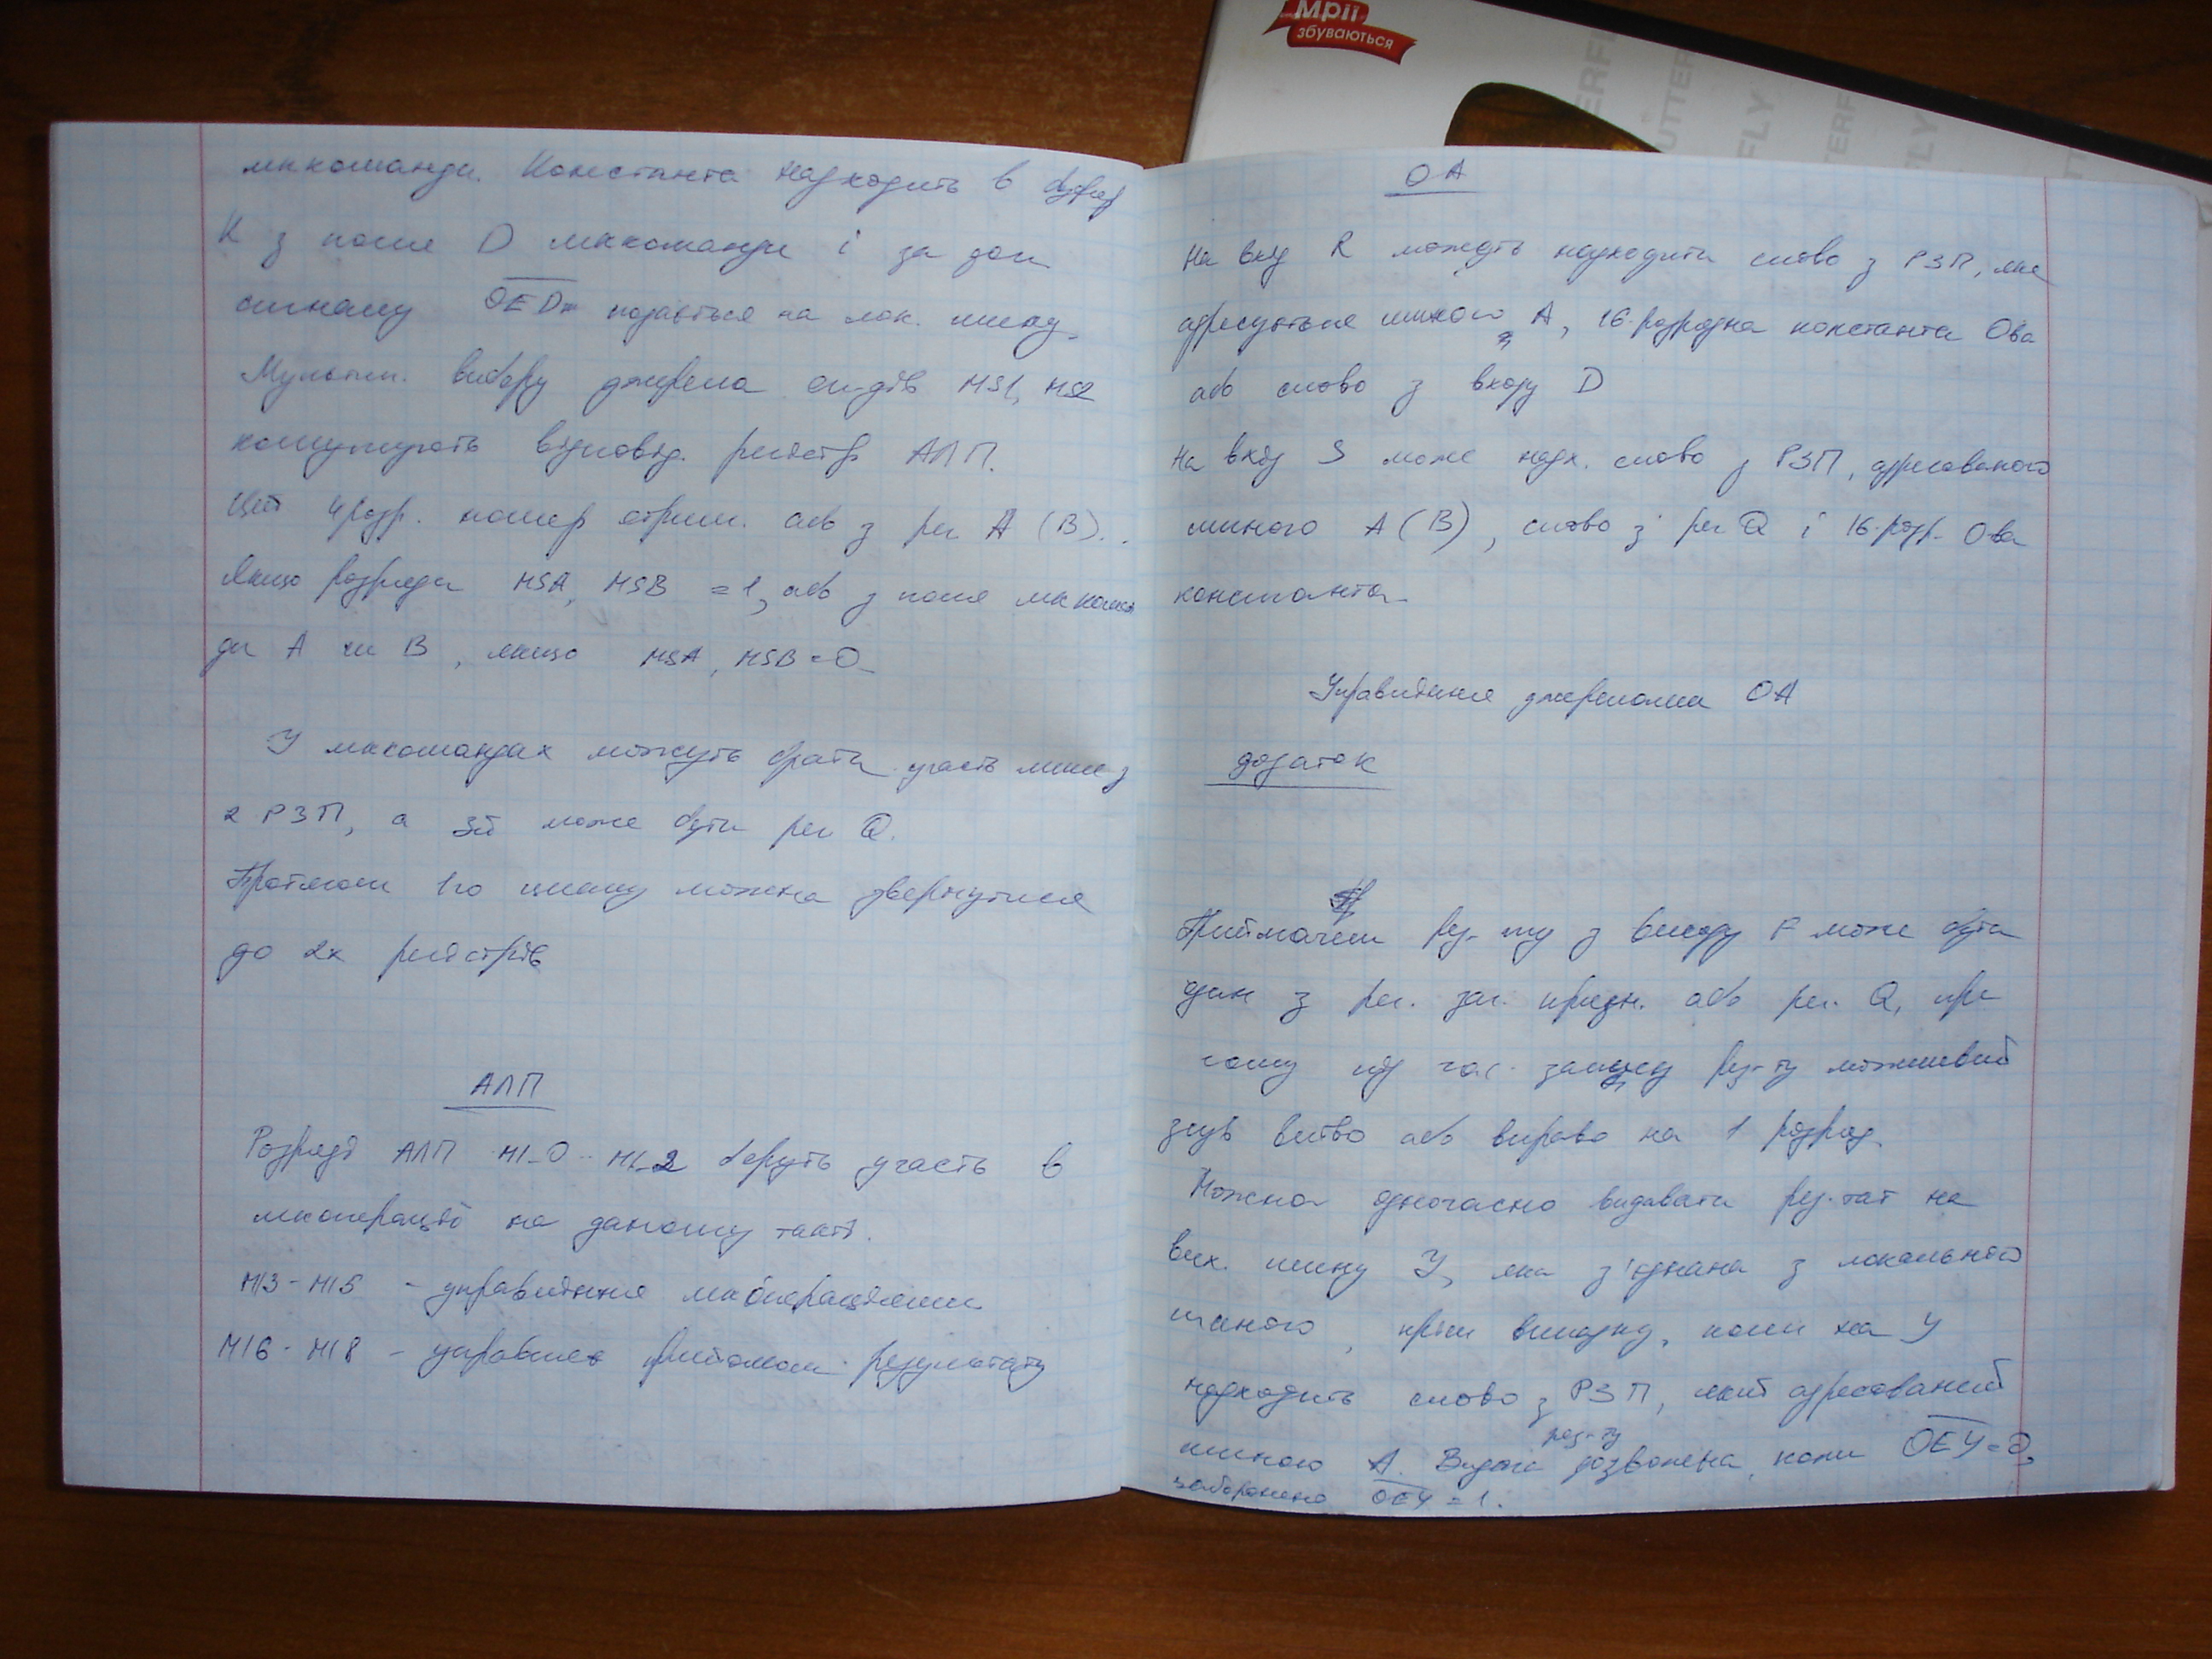 мккоманди. Константа надходить в буфер
К з поля D мккоманди і за доп
сигналу OED= подається на лок. шину.
Мультипл. вибору джерела оп-дів MS1, MS2
комутують відповід. регістр АЛП.
Цей 4розр. номер отрим. або з рег А (В).
Якщо розряди MSA, MSB = 1, або з поля мккоман
ди А чи В, якщо MSA, MSB = 0
У мккомандах можуть брати участь лише з
2 РЗП, а 3й може бути рег Q.
Протягом 1го циклу можна звернутися
до 2х регістрів
АЛП
Розряді АЛП MI_0 - MI_2 беруть участь в
мкоперації на даному такті.
MI3 - MI5 - управління мкопераціями
MI6 - MI8 - управліня прийомом результату
Мрії
збуваються
BUTTERFLY
ОА
На вхід R можуть надходити слово з РЗП, яке
адресується шиною А, 16-розрядна константа Ова
або слово з входу D
На вхід S може надх. слово з РЗП, адресованого
шиною А(В), слово з рег Q і 16-розр. Ова
константа
Управління джерелами ОА
додаток
Приймачем рез-ту з виходу F може бути
один з рег. заг. призн. або рег. Q, при
чому під час. запису рез-ту можливий
зсув вліво або вправо на 1 розряд.
Можна одночасно видавати рез-тат на
вих. шину У, яка з'єднана з локальною
шиною, крім випадку, коли на У
надходить слово з РЗП, який адресований
шиною А. Видача рез-ту дозволена, коли OEY=0,
заборонено OEY = 1.